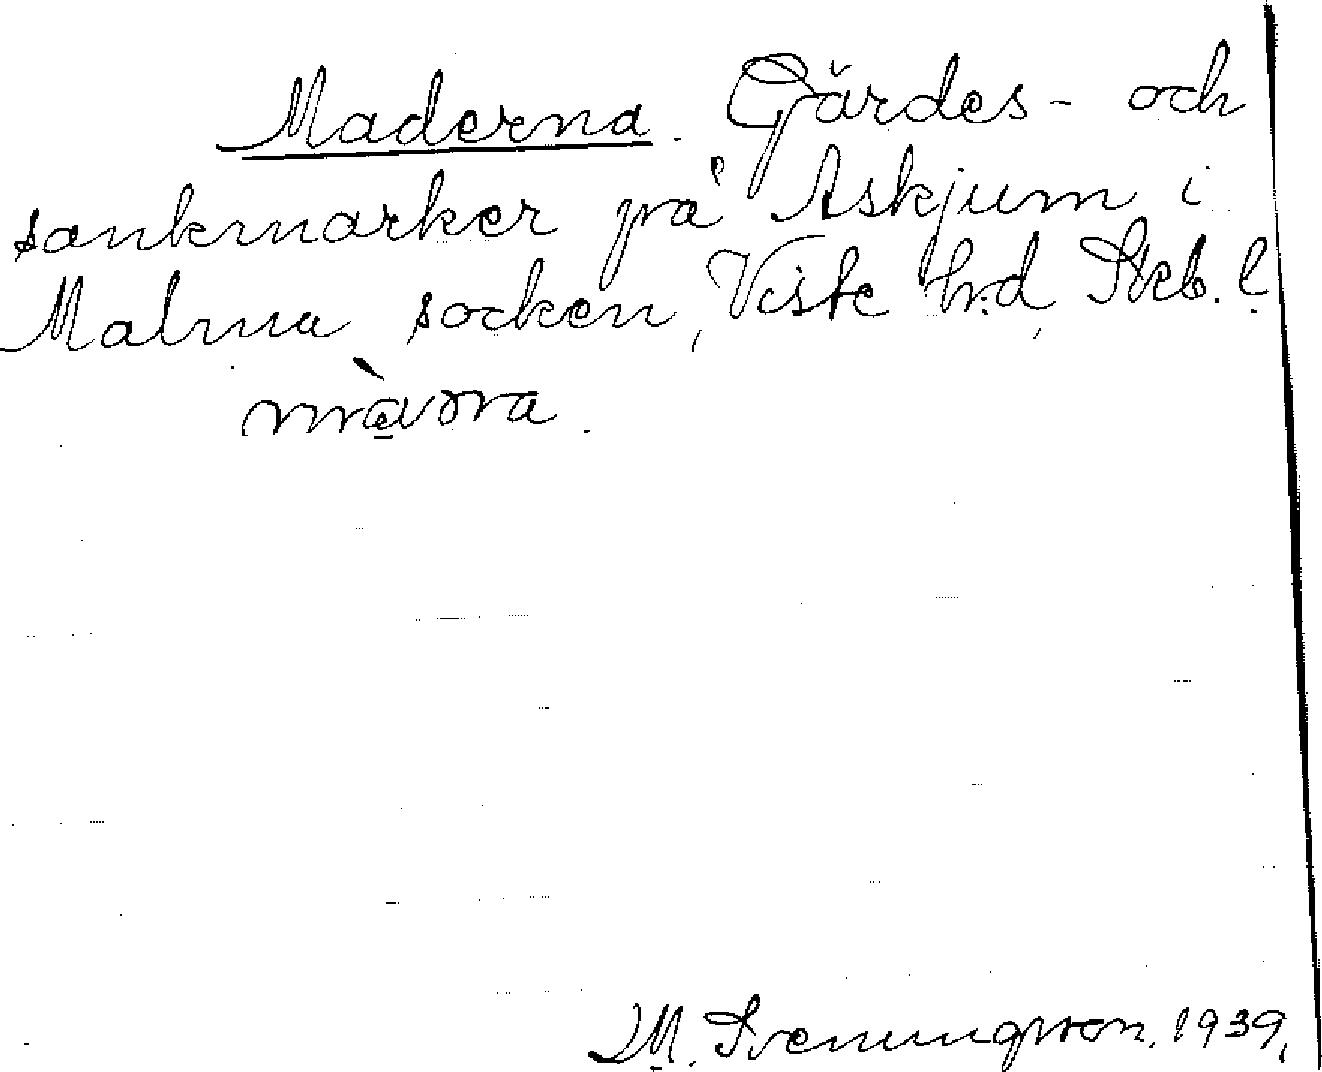 Maderna. Gärdes- och
sankmarker på Askjum i
Malma socken, Viste hd, Skb. l.
M. Svenungsson. 1939.